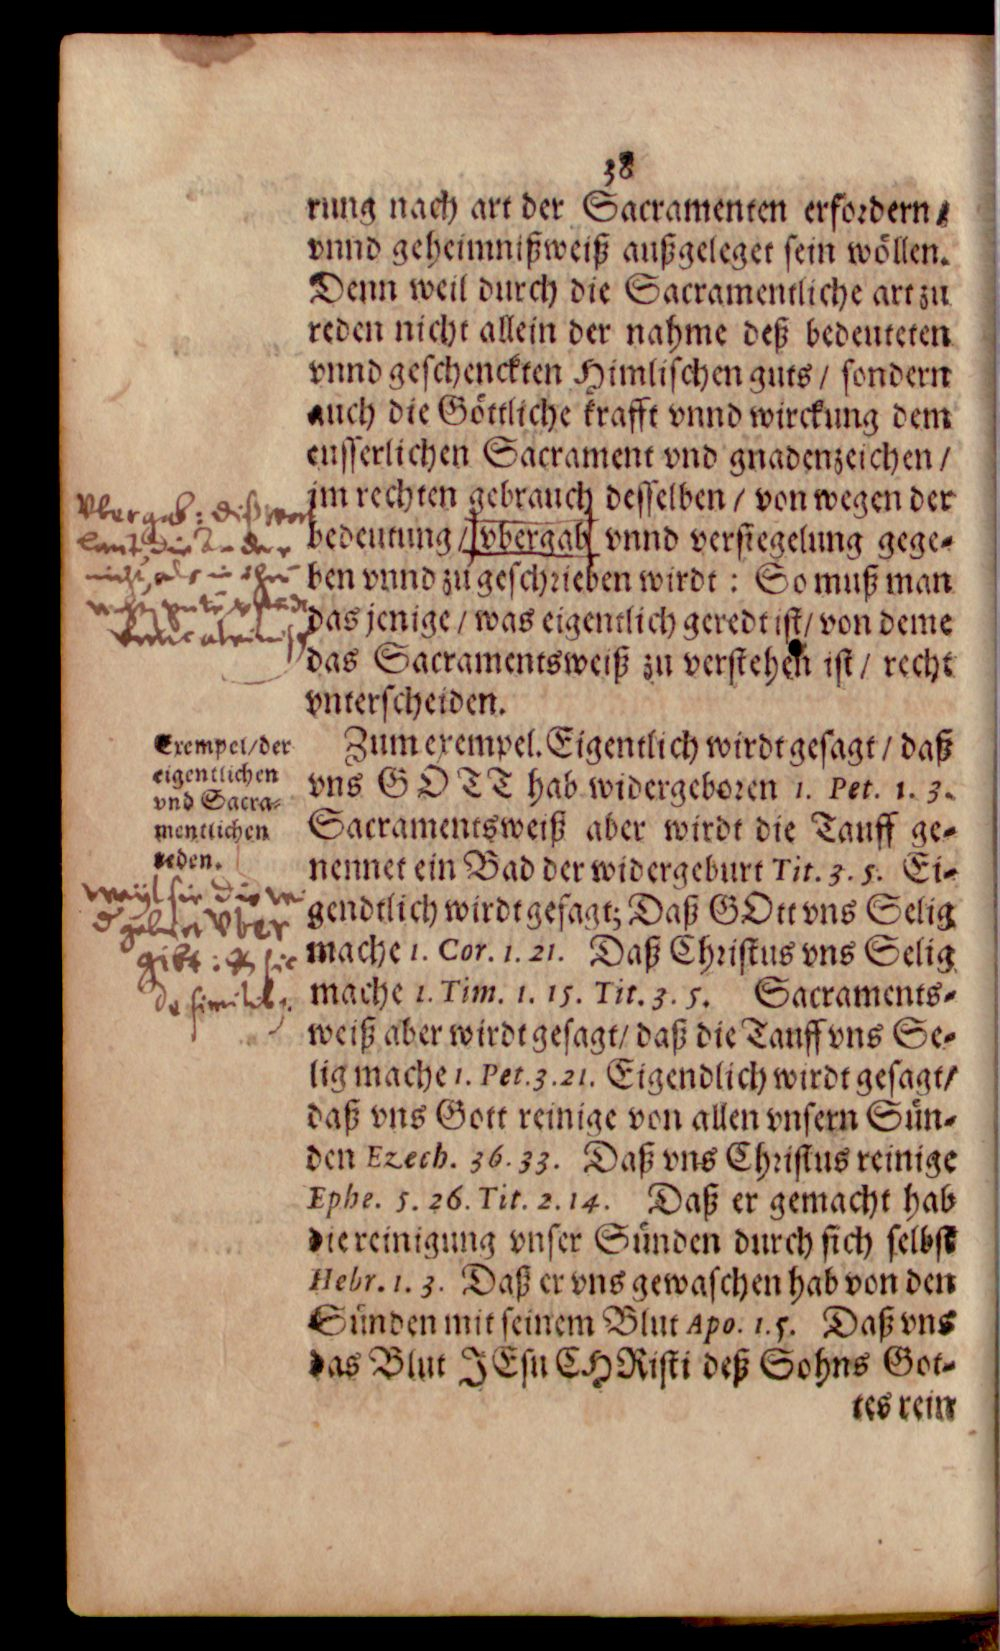 38
rung nach art der Sacramenten erfordern /
vnnd geheimnißweiß außgeleget sein wöllen.
Denn weil durch die Sacramentliche art zu
reden nicht allein der nahme deß bedeuteten
vnnd geschenckten Himlischen guts / sondern
auch die Göttliche krafft vnnd wirckung dem
eusserlichen Sacrament vnd gnadenzeichen /
im rechten gebrauch desselben / von wegen der
bedeutung / vbergab vnnd versiegelung gege-
ben vnnd zu geschrieben wirdt : So muß man
das jenige / was eigentlich geredt ist / von deme
das Sacramentsweiß zu verstehen ist / recht
vnterscheiden.
Vbergab: diß wort
Exempel / der
eigentlichen
vnd Sacra-
mentlichen
reden.
Zum exempel. Eigentlich wirdt gesagt / daß
vns GOTT hab widergeboren 1. Pet. 1. 3.
Sacramentsweiß aber wirdt die Tauff ge-
nennet ein Bad der widergeburt Tit. 3. 5. Ei-
gendtlich wirdt gesagt; Daß GOtt vns Selig
mache 1. Cor. 1. 21. Daß Christus vns Selig
mache 1. Tim. 1. 15. Tit. 3. 5. Sacraments-
weiß aber wirdt gesagt / daß die Tauff vns Se-
lig mache 1. Pet. 3. 21. Eigendlich wirdt gesagt /
daß vns Gott reinige von allen vnsern Sün-
den Ezech. 36. 33. Daß vns Christus reinige
Ephe. 5. 26. Tit. 2. 14. Daß er gemacht hab
die reinigung vnser Sünden durch sich selbst
Hebr. 1. 3. Daß er vns gewaschen hab von den
Sünden mit seinem Blut Apo. 1. 5. Daß vns
das Blut JEsu CHRisti deß Sohns Got-
tes rein
Vber
gibt : sic
de similibg.